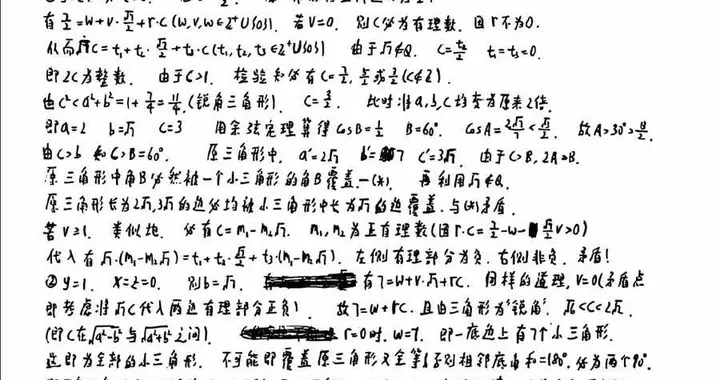 有 7/2 = w + v·√7/2 + r·c (u,v,w∈Z⁺∪{0}). 若 V=0, 则 C 必为有理数. 因 r 不为 0.
从而 √7C = t₁ + t₂·√7/2 + t₃·c (t₁,t₂,t₃∈Z⁺∪{0}) 由于 √7∉Q. C = t₂/2 t₁=t₃=0.
即 2C 为整数. 由于 C>1. 检验知必有 C=
由 c²<a²+b²=1+7/4=11/4 (锐角三角形). C=3/2. 此时准 a,b,c 均变为原来2倍.
即 a=2 b=√7 C=3 用余弦定理算得 cosB=1/2 B=60°. cosA=2√7/7<√3/2. 故 A>30°
由 C>b 知 C>B=60°. 原三角形中, a'=2√7 b'=7 c'=3√7. 由于 C>B, 2A>B.
原三角形中角B'必然被一个小三角形的角B覆盖—(*). 再利用√7∉Q.
原三角形长为2√7,3√7的边必均被小三角形中长为√7的边覆盖. 与(*)矛盾.
若 V≥1. 类似地. 必有 C=m₁-m₂√7. m₁,m₂为正有理数 (因 r·c=7/2-w-√7/2 v>0)
代入有 √7·(m₁-m₂√7)=t₁+t₂·√7/2+t₃·(m₁-m₂√7). 左侧有理部分为负. 右侧非负. 矛盾!
② y=1. x=z=0. 则 b=√7. 有 7=w+v·√7+rc. 同样的道理, V=0 (矛盾点
即考虑准√7C代入两边有理部分正负). 故 7=w+rc. 且由三角形为"锐角". √6<C<2√2.
(即 C 在 √(a²-b²) 与 √(a²+b²) 之间). r=0时. w=7. 即一底边上有7个小三角形.
这即为全部的小三角形. 不可能即覆盖原三角形又全等 则相邻底角和=180°. 必为两个90°.